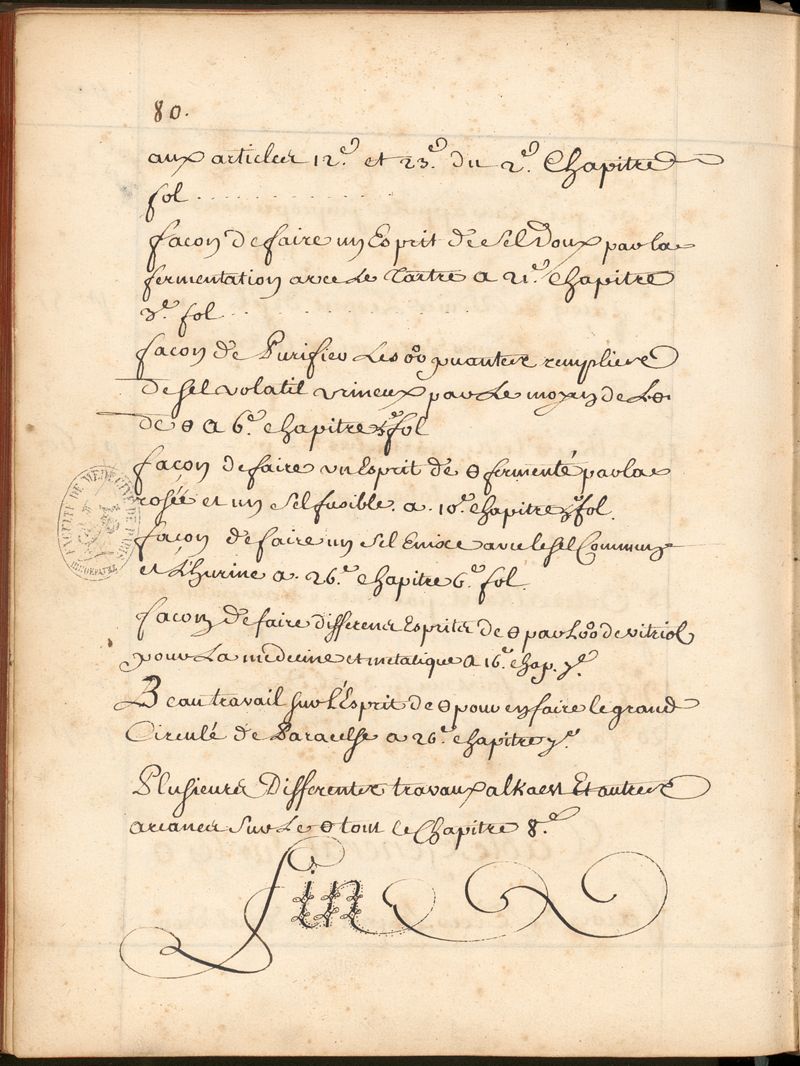 80.
aux articles 12.e et 23.e du 2.e Chapitre
fol . . . . . . . . . . . . .
façon de faire un Esprit de sel Doux par la
fermentation avec Le Tartre a 21.e Chapitre
3.e fol . . . . . . . . . . . . .
façon de Purifier Les puantes remplies
de sel volatil urineux par Le moyen de L
de 🜔 a 6.e chapitre fol
façon de faire un Esprit de 🜔 fermenté par la
rosée et un sel fusible. a. 10.e Chapitre fol.
façon de faire un sel Enixe avec le sel Commun
et L'hurine a. 26.e chapitre 6.e fol.
façon de faire differens Esprits de 🜔 par de vitriol
pour La medecine et metalique a 16.e chap. 7.e
Beau travail sur l'Esprit de 🜔 pour en faire le grand
Circulé de Paracelse a 26.e chapitre 7.e
Plusieurs Differentes travaux alkaest Et autres
arcanes sur Le 🜔 tout le Chapitre 8.e
fin
FACULTÉ DE MEDECINE DE PARIS